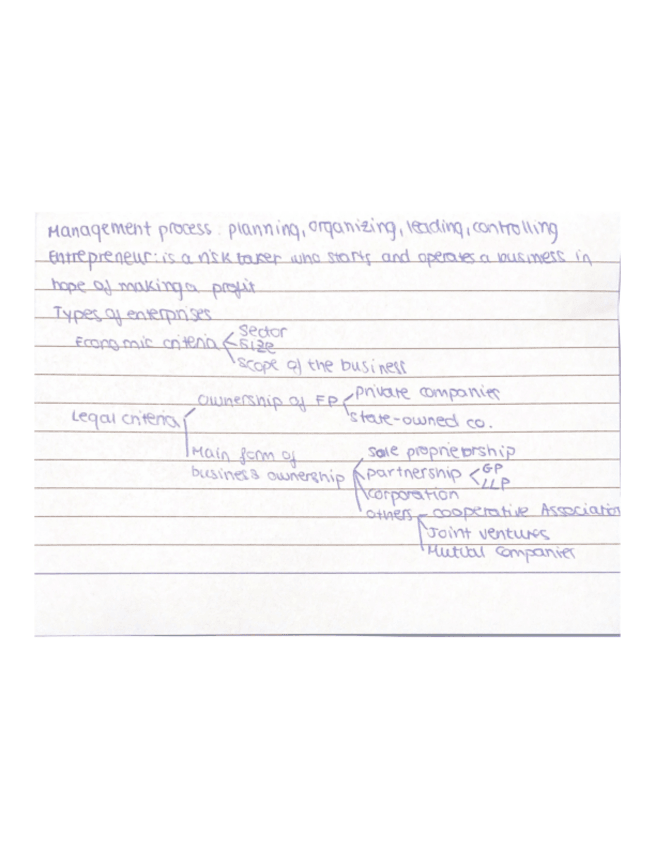 Management process: planning, organizing, leading, controlling
Entrepreneur: is a risk taker who starts and operates a business in
hope of making a profit
Types of enterprises
Economic criteria
Sector
Size
Scope of the business
Legal criteria
Ownership of FP
private companies
state-owned co.
Main form of
business ownership
sole proprietorship
partnership
GP
LLP
corporation
others
cooperative Association
Joint ventures
Mutual Companies